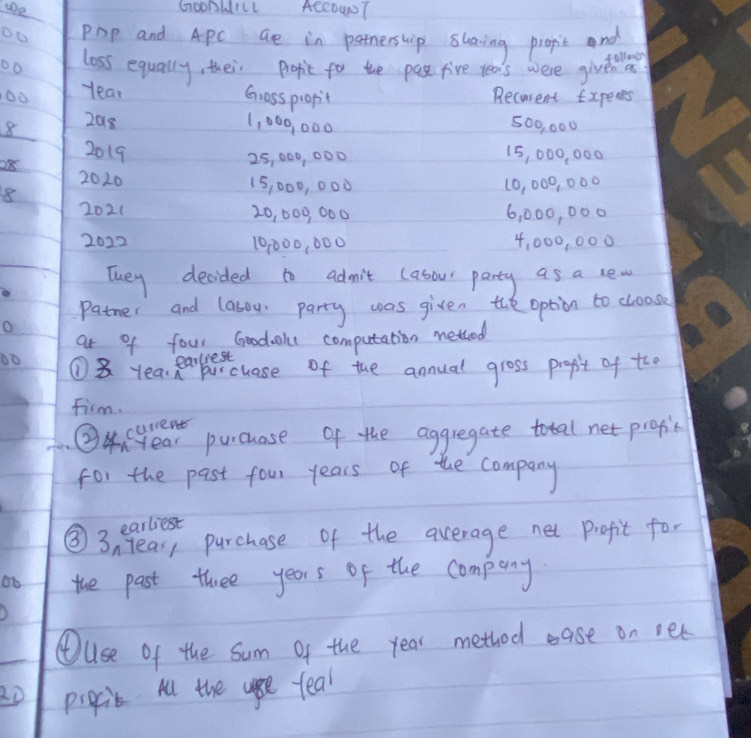 GOODWILL ACCOUNT
PDP and APC are in patnership sharing profit and
loss equally, their profit for the past five years were given as follows
Year Gross profit Recurrent Expenses
2018 1,000,000 500,000
2019 25,000,000 15,000,000
2020 15,000,000 10,000,000
2021 20,000,000 6,000,000
2022 10,000,000 4,000,000
They decided to admit Labour party as a new
Patner and labour party was given the option to choose
of four Goodwill computation method
① 3 Year earliest purchase of the annual gross profit of the
firm.
② 4 current Year purchase of the aggregate total net profit
for the past four years of the company
③ 3 earliest Year, purchase of the average net profit for
the past three years of the company.
④ Use of the sum of the year method base on net
profit. All the year
00
00
00
8
08
8
0
00
00
0
20